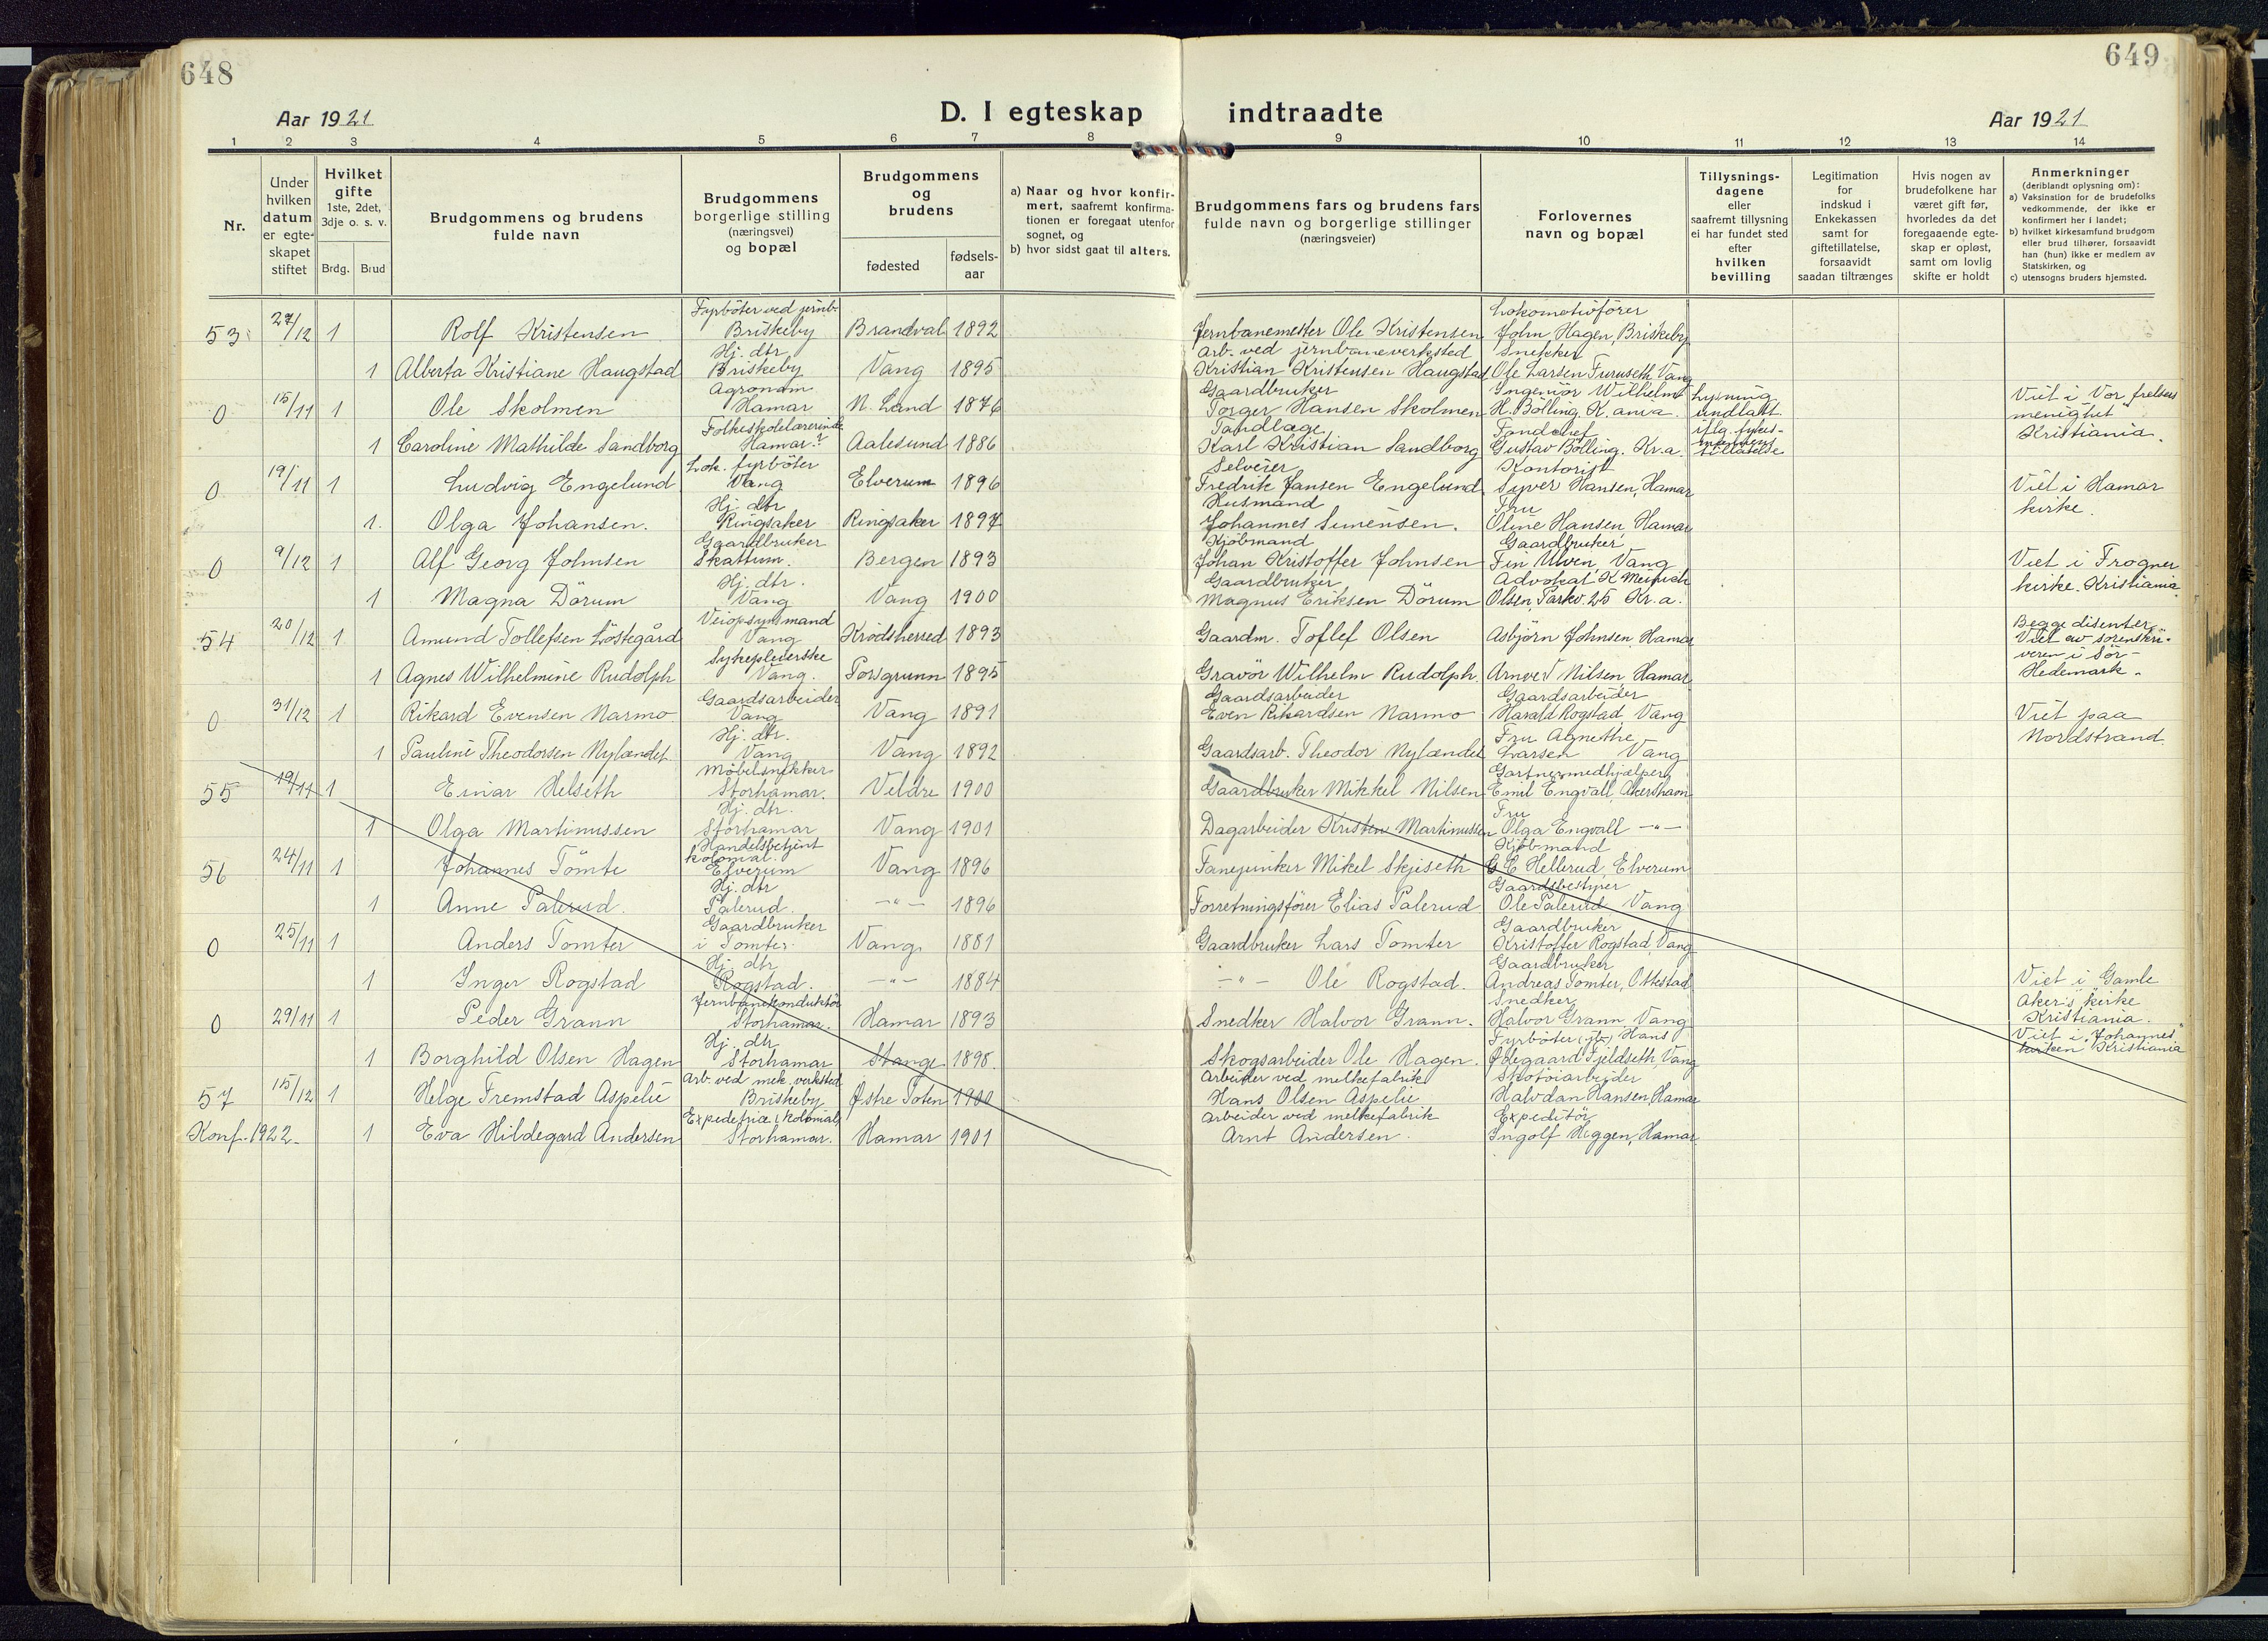 648
649
D. I egteskap indtraadte
Aar 1921
Aar 1921
1 2 3 4 5 6 7 8 9 10 11 12 13 14
Nr.
Under hvilken datum er egteskapet stiftet
Hvilket gifte 1ste, 2det, 3dje o. s. v.
Brdg. Brud
Brudgommens og brudens fulde navn
Brudgommens borgerlige stilling (næringsvei) og bopæl
Brudgommens og brudens
fødested
fødsels-aar
a) Naar og hvor konfirmert, saafremt konfirmationen er foregaat utenfor sognet, og
b) hvor sidst gaat til alters.
Brudgommens fars og brudens fars fulde navn og borgerlige stillinger (næringsveier)
Forlovernes navn og bopæl
Tillysningsdagene eller saafremt tillysning ei har fundet sted efter hvilken bevilling
Legitimation for indskud i Enkekassen samt for giftetillatelse, forsaavidt saadan tiltrænges
Hvis nogen av brudefolkene har været gift før, hvorledes da det foregaaende egteskap er opløst, samt om lovlig skifte er holdt
Anmerkninger (deriblandt oplysning om):
a) Vaksination for de brudefolks vedkommende, der ikke er konfirmert her i landet;
b) hvilket kirkesamfund brudgom eller brud tilhører, forsaavidt han (hun) ikke er medlem av Statskirken, og
c) utensogns bruders hjemsted.
53 27/12 1 Rolf Kristensen Fyrböter ved jernb. Briskeby Brandval 1892 Jernbanemester Ole Kristensen Lokomotivförer John Hagen, Briskeby
1 Alberta Kristiane Haugstad Hj. dtr Briskeby Vang 1895 Arb. ved jernbaneverksted Kristian Kristensen Haugstad Snekker Ole Larsen Furuseth, Vang
0 15/11 1 Ole Skolmen Agronom Hamar N. Land 1876 Gaardbruker Torger Hansen Skolmen Ingeniör Wilhelm H. Bölling, K.ania. Lysning undlatt Viet i Vor frelsers menighet
1 Caroline Mathilde Sandborg Folkeskolelærerinde Hamar? Aalesund 1886 Tandlæge Karl Kristian Sandborg Fondchef Gustav Bölling. Kr.a. iflg. tillatelse Kristiania.
0 19/11 1 Ludvig Engelund Lok. fyrböter Vang Elverum 1896 Selveier Fredrik Jansen Engelund Kontorist Syver Hansen, Hamar Viet i Hamar
1. Olga Johansen. Hj. dtr Ringsaker Ringsaker 1897 Husmand Johannes Simensen. Fru Oline Hansen, Hamar kirke.
0 9/12 1 Alf Georg Johnsen Gaardbruker Skattum. Bergen 1893 Kjöbmand Johan Kristoffer Johnsen Gaardbruker Fin Ulven, Vang Viet i Frogner
1 Magna Dörum Hj. dtr. Vang Vang 1900 Gaardbruker Magnus Eriksen Dörum Advokat K Meinich Olsen, Parkv. 25 Kr.a. kirke. Kristiania
54 20/12 1 Amund Tollefsen Löstegård Veiopsynsmand Vang Krödsherred 1893 Gaardm. Tollef Olsen Asbjörn Johnsen, Hamar Begge disenter. Viet av sorenskri-
1 Agnes Wilhelmine Rudolph Sykepleierske Vang. Porsgrunn 1895 Gravör Wilhelm Rudolph. Arne Nilsen Hamar veren i Sör-Hedemark.
0 31/12 1 Rikard Evensen Narmo Gaardsarbeider Vang Vang 1891 Gaardsarbeider Even Rikardsen Narmo Gaardsarbeider Harald Rogstad, Vang Viet paa
1 Pauline Theodorsen Nylændet Hj. dtr. Vang Vang 1892 Gaardsarb. Theodor Nylændet Fru Agnethe Larsen Vang Nordstrand.
55 19/11 1 Einar Helseth Möbelsnekker Storhamar. Veldre 1900 Gaardbruker Mikkel Nilsen Gartnermedhjælper Emil Engvall, Akershagn
1 Olga Martinussen Hj. dtr. Storhamar Vang 1901 Dagarbeider Kristen Martinussen Fru Olga Engvall -"-
56 24/11 1 Johannes Tömte Handelsbetjent kolonial. Elverum Vang 1896 Fanejunker Mikel Skjiseth Kjöbmand G. C. Hellerud, Elverum
1 Anne Palerud. Hj. dtr Palerud. -"- 1896 Forretningsförer Elias Palerud Gaardsbestyrer Ole Palerud Vang
0 25/11 1 Anders Tomter Gaardbruker i Tomter. Vang. 1881 Gaardbruker Lars Tomter Gaardbruker Kristoffer Rogstad, Vang
1 Inger Rogstad Hj. dtr Rogstad. -"- 1884 -"- Ole Rogstad. Gaardbruker Andreas Tomter, Ottestad Viet i "Gamle Akers" kirke Kristiania.
0 29/11 1 Peder Grann Jernbanekonduktör Storhamar. Hamar 1893 Snedker Halvor Grann. Snedker Halvor Grann Vang
1 Borghild Olsen Hagen Hj. dtr Storhamar Stange 1898. Skogsarbeider Ole Hagen. Fyrböter (jb.) Hans Ödegaard Fjeldseth, Vang Viet i "Johannes" kirken Kristiania
57 15/12 1 Helge Fremstad Aspelie Arb. ved mek. verksted Briskeby Østre Toten 1900 Arbeider ved melkefabrik Hans Olsen Aspelie Skotöiarbeider Halvdan Hansen, Hamar
Konf. 1922. 1 Eva Hildegard Andersen Expeditrice i kolonial. Storhamar. Hamar 1901 Arbeider ved melkefabrik Arnt Andersen. Expeditör Ingolf Heggen, Hamar